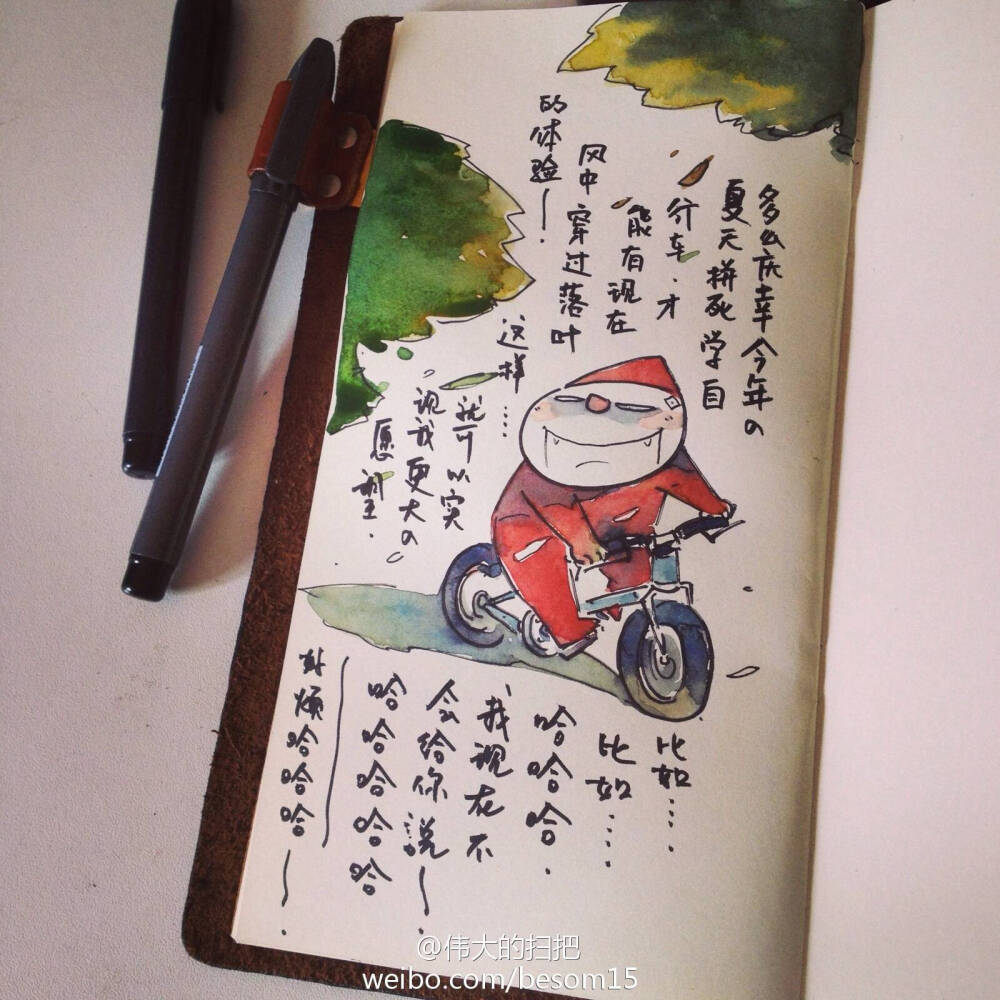 多么庆幸今年の
夏天拼死学自
行车.才
能有现在
风中穿过落叶
的体验~.
这样....
就可以实
现我更大の
愿望.
比如....
比如....
哈哈哈.
我现在不
会给你說~.
哈哈哈哈哈~
烦哈哈哈~.
@伟大的扫把
weibo.com/besom15